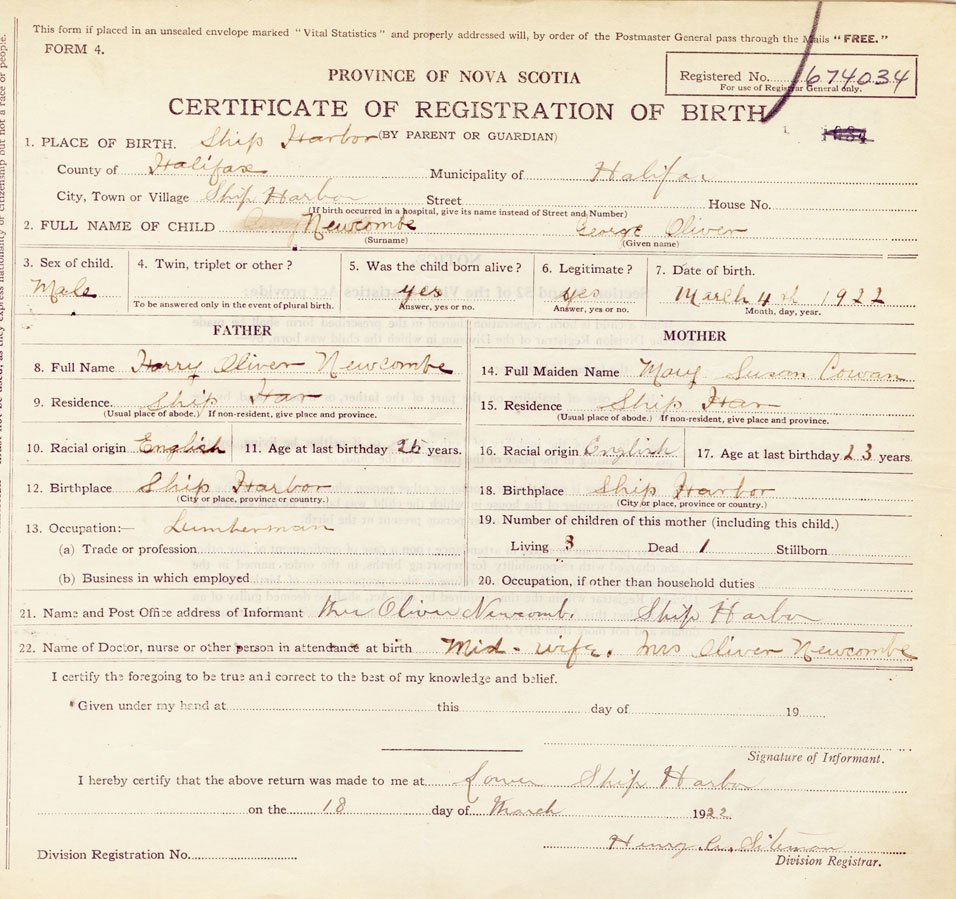 This form if placed in an unsealed envelope marked "Vital Statistics" and properly addressed will, by order of the Postmaster General pass through the Mails "FREE."
FORM 4.
PROVINCE OF NOVA SCOTIA
Registered No. 674034
For use of Registrar General only.
CERTIFICATE OF REGISTRATION OF BIRTH
(BY PARENT OR GUARDIAN)
1. PLACE OF BIRTH. Ship Harbor
County of Halifax Municipality of Halifax
City, Town or Village Ship Harbor Street House No.
(If birth occurred in a hospital, give its name instead of Street and Number)
2. FULL NAME OF CHILD Newcombe George Oliver
(Surname) (Given name)
3. Sex of child. 4. Twin, triplet or other? 5. Was the child born alive? 6. Legitimate? 7. Date of birth.
Male yes yes March 4th 1922
To be answered only in the event of plural birth. Answer, yes or no. Answer, yes or no. Month, day, year.
FATHER MOTHER
8. Full Name Harry Oliver Newcombe 14. Full Maiden Name Mary Susan Cowan
9. Residence. Ship Har 15. Residence Ship Har
(Usual place of abode.) If non-resident, give place and province. (Usual place of abode.) If non-resident, give place and province.
10. Racial origin English 11. Age at last birthday years. 16. Racial origin English 17. Age at last birthday 23 years.
12. Birthplace Ship Harbor 18. Birthplace Ship Harbor
(City or place, province or country.) (City or place, province or country.)
13. Occupation:— Lumberman 19. Number of children of this mother (including this child.)
(a) Trade or profession Living 3 Dead 1 Stillborn
(b) Business in which employed 20. Occupation, if other than household duties
21. Name and Post Office address of Informant Mrs Oliver Newcombe. Ship Harbor
22. Name of Doctor, nurse or other person in attendance at birth Mid-wife. Mrs Oliver Newcombe
I certify the foregoing to be true and correct to the best of my knowledge and belief.
*Given under my hand at this day of 19
Signature of Informant.
I hereby certify that the above return was made to me at Lower Ship Harbor
on the 18 day of March 1922
Henry
Division Registration No. Division Registrar.